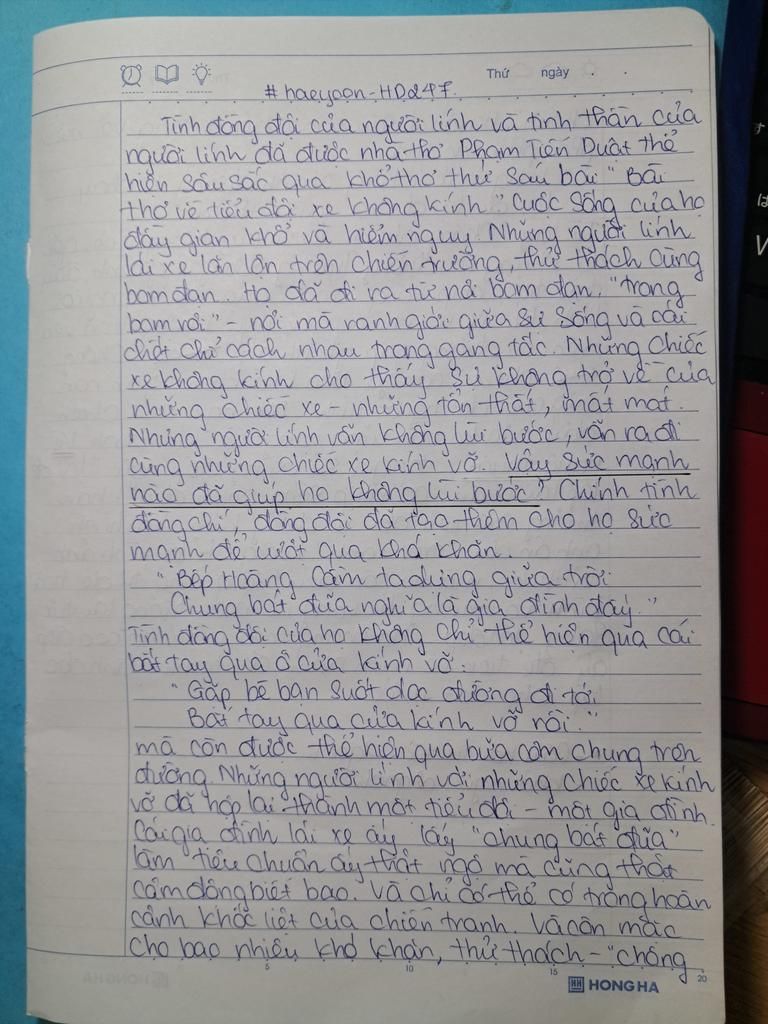 Thứ ngày . .
#haeyoon-HD247.
Tình đồng đội của người lính và tinh thần của
người lính đã được nhà thơ Phạm Tiến Duật thể
hiện sâu sắc qua khổ thơ thứ sáu bài "Bài
thơ về tiểu đội xe không kính". Cuộc sống của họ
đầy gian khổ và hiểm nguy. Những người lính
lái xe lăn lộn trên chiến trường, thử thách cùng
bom đạn. Họ đã đi ra từ nơi bom đạn, "trong
bom rơi" - nơi mà ranh giới giữa sự sống và cái
chết chỉ cách nhau trong gang tấc. Những chiếc
xe không kính cho thấy sự không trở về của
những chiếc xe - những tổn thất, mất mát.
Nhưng người lính vẫn không lùi bước, vẫn ra đi
cùng những chiếc xe kính vỡ. Vậy sức mạnh
nào đã giúp họ không lùi bước? Chính tình
đồng chí, đồng đội đã tạo thêm cho họ sức
mạnh để vượt qua khó khăn.
"Bếp Hoàng Cầm ta dựng giữa trời
Chung bát đũa nghĩa là gia đình đấy."
Tình đồng đội của họ không chỉ thể hiện qua cái
bắt tay qua ô cửa kính vỡ.
"Gặp bè bạn suốt dọc đường đi tới
Bắt tay qua cửa kính vỡ rồi."
mà còn được thể hiện qua bữa cơm chung trên
đường. Những người lính với những chiếc xe kính
vỡ đã họp lại thành một tiểu đội - một gia đình.
Cái gia đình lái xe ấy lấy "chung bát đũa"
làm tiêu chuẩn ấy thật ngộ mà cũng thật
cảm động biết bao. Và chỉ có thể có trong hoàn
cảnh khốc liệt của chiến tranh. Và còn mặc
cho bao nhiêu khó khăn, thử thách - "chông
5 10 15 20
HH HONG HA